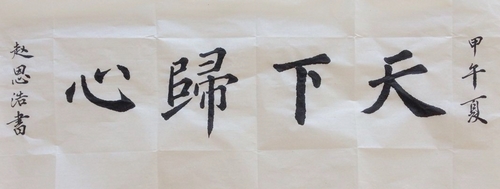 甲午夏
天下歸心
赵思浩書